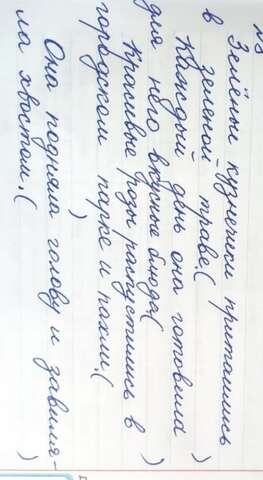 Зелёные кузнечики притаились
в зеленой траве.( )
Каждый день она готовила
для него вкусные блюда( )
Красивые розы распустились в
городском парке и пахли.( )
Она подняла голову и завиля-
ла хвостом.( )